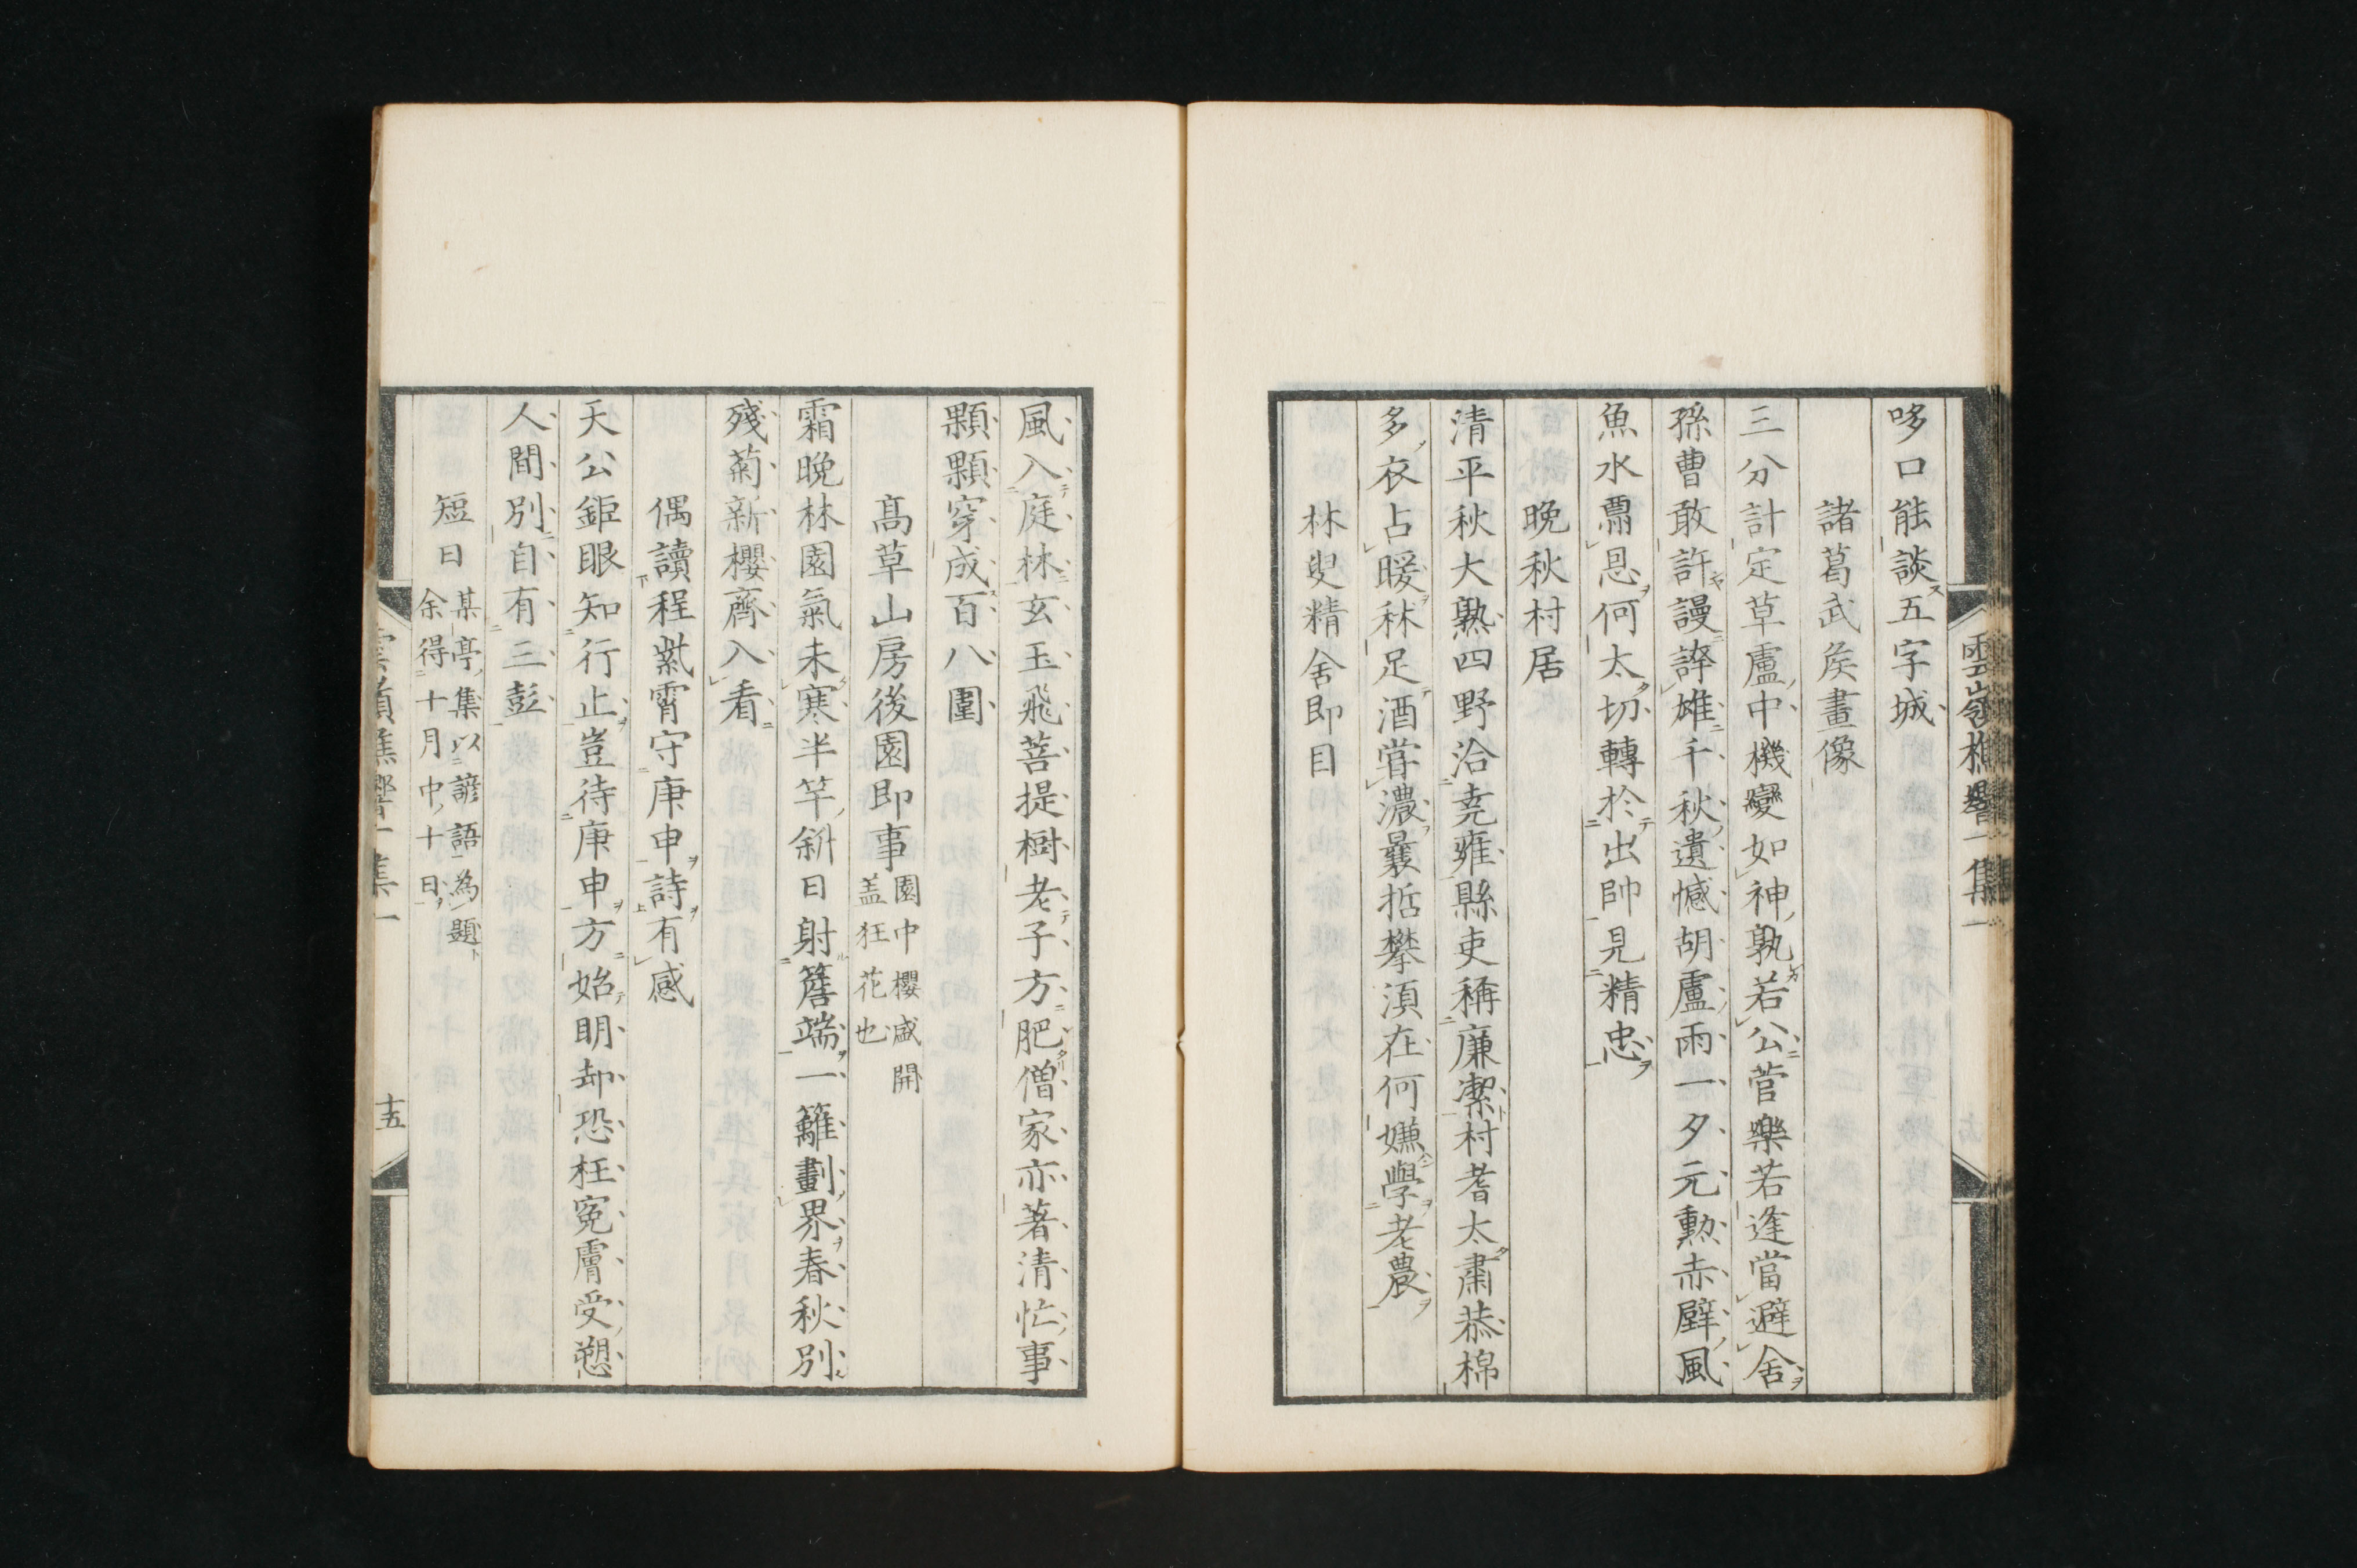 雲嶺樵響一集一
哆口能談五字城
諸葛武侯畫像
三分計定草廬中機變如神孰若公菅樂若逢當避舍
孫曹敢許謾誇雄千秋遺憾胡盧雨一夕元勲赤壁風
魚水覃恩何太切轉於出帥見精忠
晩秋村居
清平秋大熟四野洽堯雍縣吏稱廉潔村耆太肅恭棉
多衣占暖秫足酒甞濃曩哲攀湏在何嫌學老農
林叟精舍即目
風入庭林玄玉飛菩提樹老子方肥僧家亦著清忙事
顆顆穿成百八圍
高草山房後園即事園中櫻盛開
盖狂花也
霜晩林園氣未寒半竿斜日射簷端一籬劃界春秋別
殘菊新櫻齊入看
偶讀程紫霄守庚申詩有感
天公鉅眼知行止豈待庚申方始明却恐枉寃膚受愬
人間別自有三彭
短日某亭集以諺語為題
余得十月中十日
雲嶺樵響一集一
十五